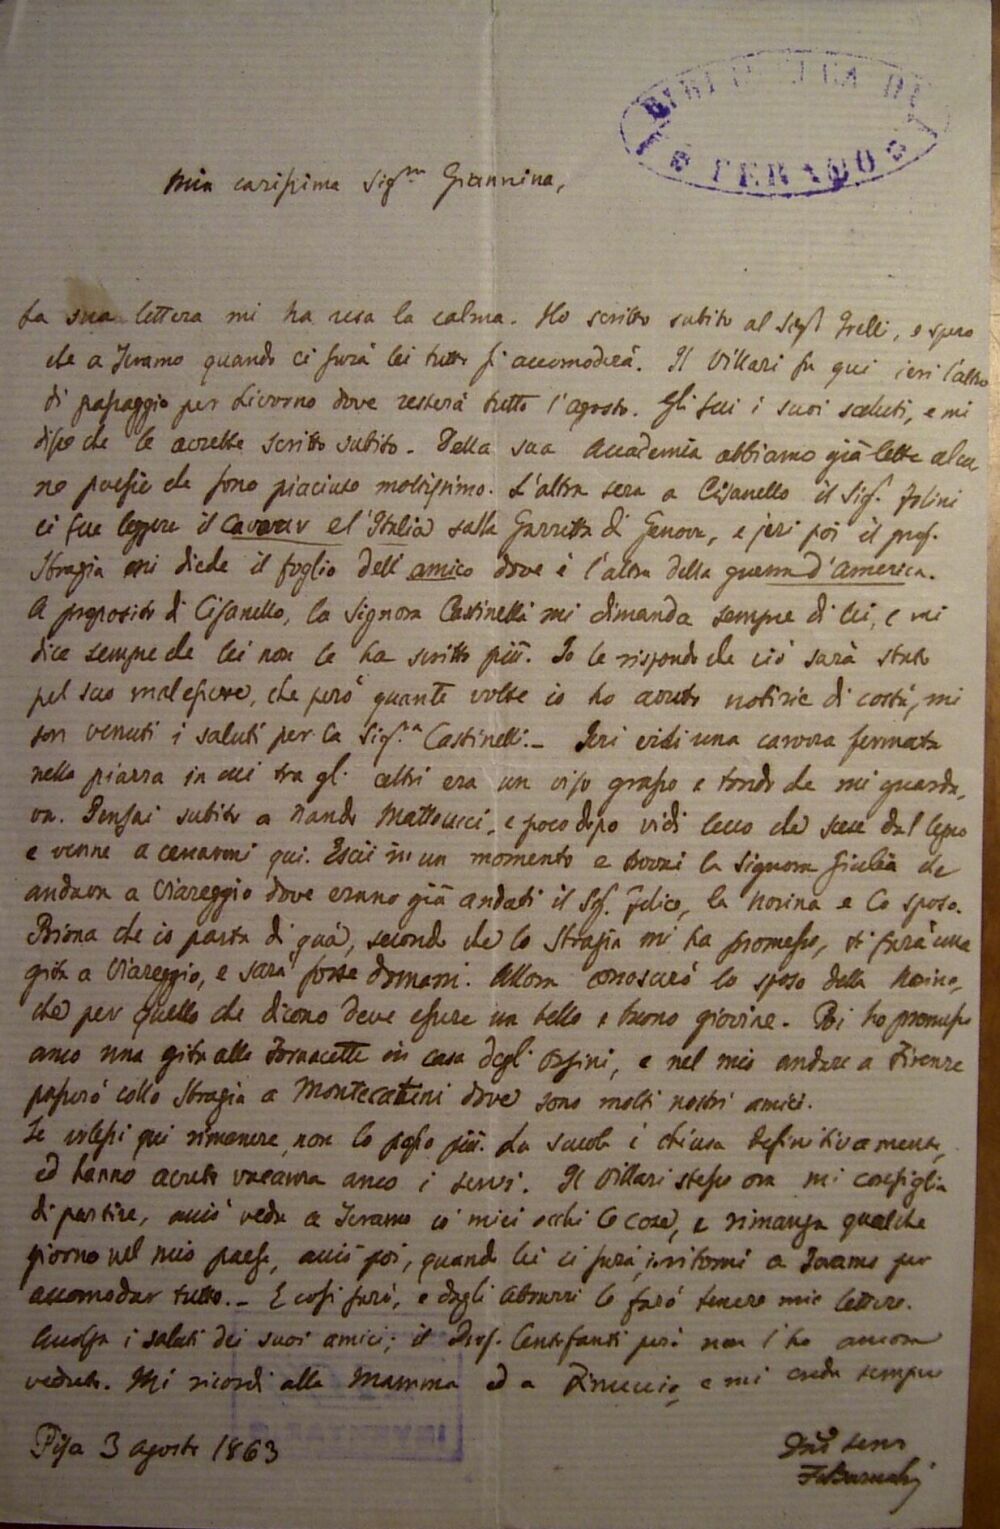 BIBLIOTECA DI
TERAMO
Mia carissima Sigra Giannina,
La sua lettera mi ha resa la calma. Ho scritto subito al Sigr Irelli, e spero
che a Teramo quando ci sarà lei tutto si accomoderà. Il Villari fu qui ieri l'altro
di passaggio per Livorno dove resterà tutto l'agosto. Gli feci i suoi saluti, e mi
disse che le avrebbe scritto subito. Della sua Accademia abbiamo già lette alcu
ne poesie che sono piaciute moltissimo. L'altra sera a Cisanello il Sig.
ci fece leggere il Cavour e l'Italia sulla Gazzetta di Genova, e jeri poi il prof.
Sbragia mi diede il foglio dell'amico dove è l'altra della guerra d'America.
A proposito di Cisanello, la Signora Castinelli mi dimanda sempre di lei, e mi
dice sempre che lei non le ha scritto più. Io le rispondo che ciò sarà stato
pel suo malessere, che però quante volte io ho avuto notizie di costà, mi
son venuti i saluti per la Sig.a Castinelli. Ieri vidi una carrozza fermata
nella piazza in cui tra gli altri era un viso grasso e tondo che mi guarda-
va. Pensai subito a Nando Matteucci, e poco dopo vidi Cecco che scese dal legno
e venne a cercarmi qui. Escii in un momento e trovai la Signora Giulia che
andava a Viareggio dove erano già andati il Sig. Felice, la Norina e lo sposo.
Prima che io parta di quà, secondo che lo Sbragia mi ha promesso, si farà una
gita a Viareggio, e sarà forse domani. Allora conoscerò lo sposo della Norina,
che per quello che dicono deve essere un bello e buono giovine. Poi ho promesso
anco una gita alle Fornacette in casa degli Orsini, e nel mio andare a Firenze
passerò collo Sbragia a Montecatini dove sono molti nostri amici.
Se volessi qui rimanere, non lo posso più. La scuola è chiusa definitivamente,
ed hanno avuto vacanza anco i servi. Il Villari stesso ora mi consiglia
di partire, acciò veda a Teramo co' miei occhi le cose, e rimanga qualche
giorno nel mio paese, acciò poi, quando lei ci sarà, ritorni a Teramo per
accomodar tutto. E così farò, e dagli Abruzzi le farò tenere mie lettere.
Accolga i saluti dei suoi amici; il Prof. Centofanti però non l'ho ancora
veduto. Mi ricordi alla Mamma ed a e mi creda sempre
Pisa 3 agosto 1863
INVENTAR